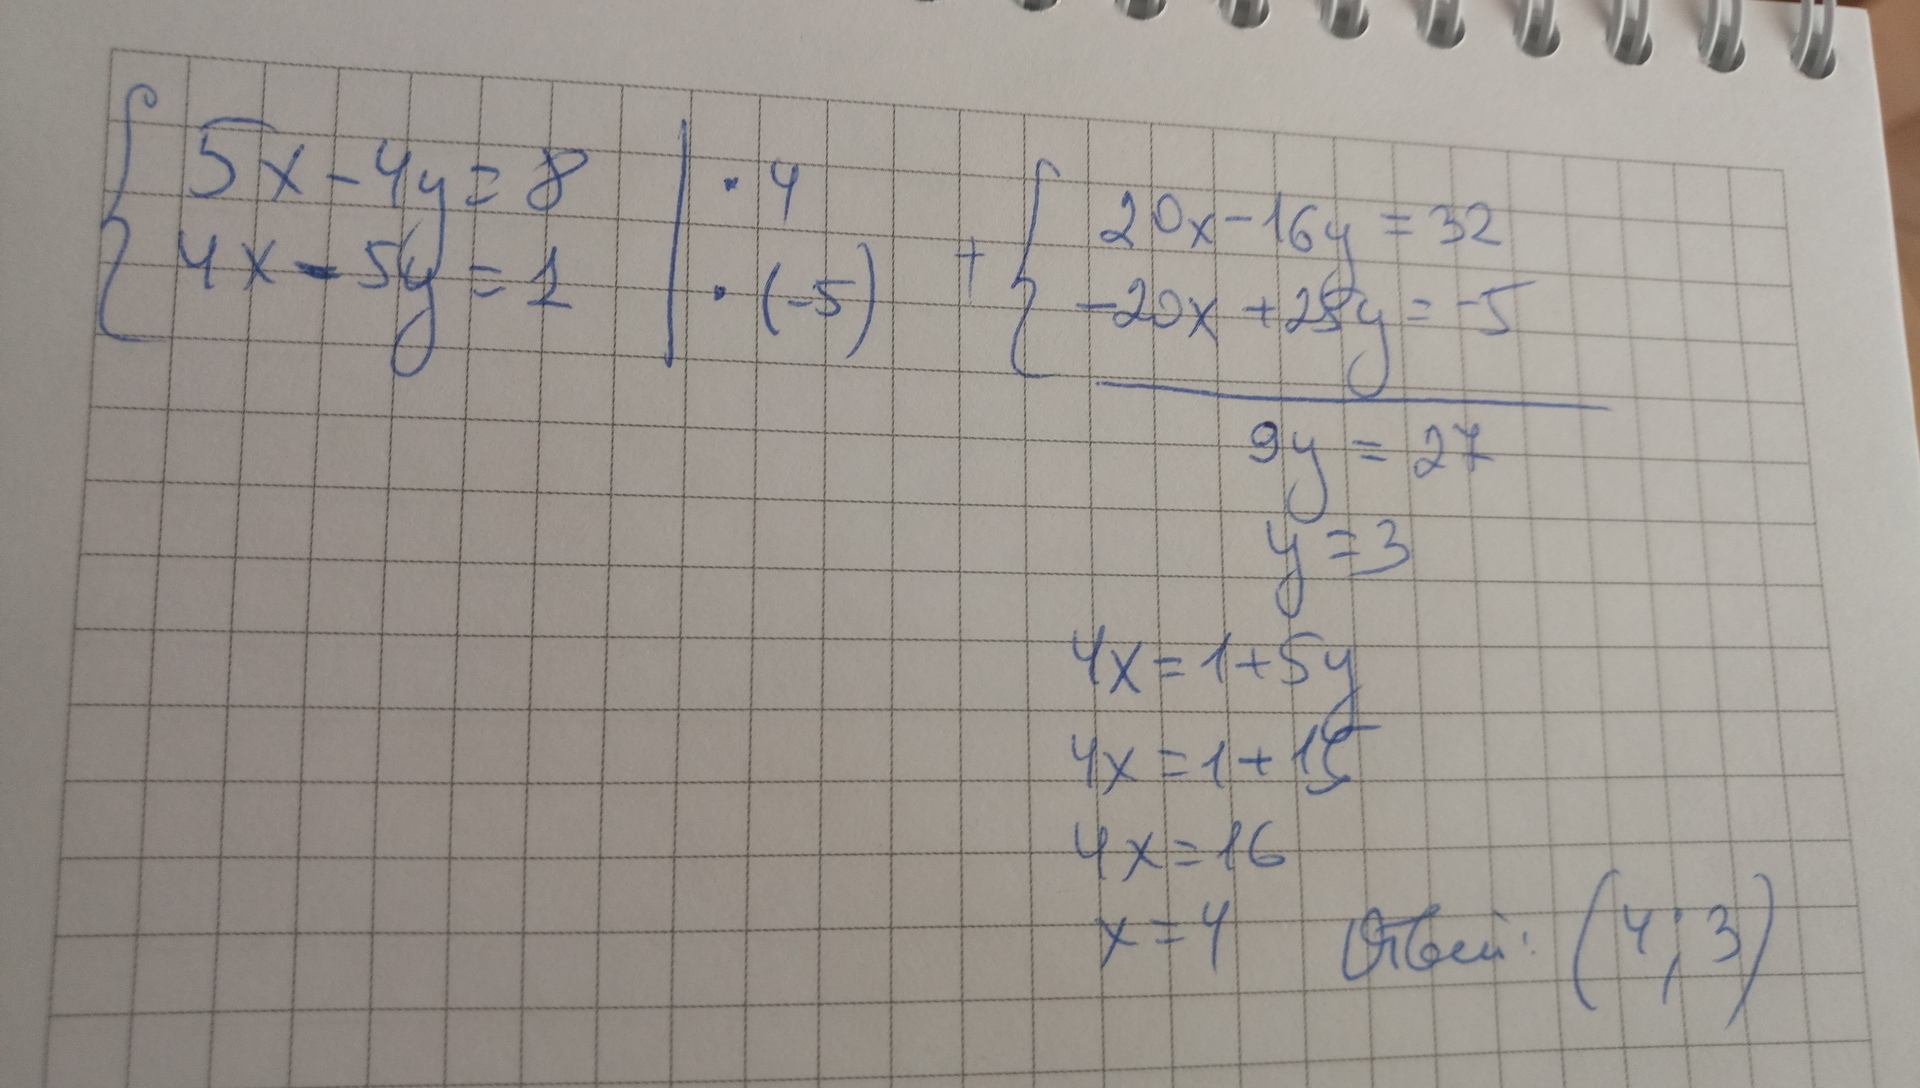 5x - 4y = 8 | · 4
4x - 5y = 1 | · (-5)
+ { 20x - 16y = 32
-20x + 25y = -5
9y = 27
y = 3
4x = 1 + 5y
4x = 1 + 15
4x = 16
x = 4 Ответ: (4; 3)